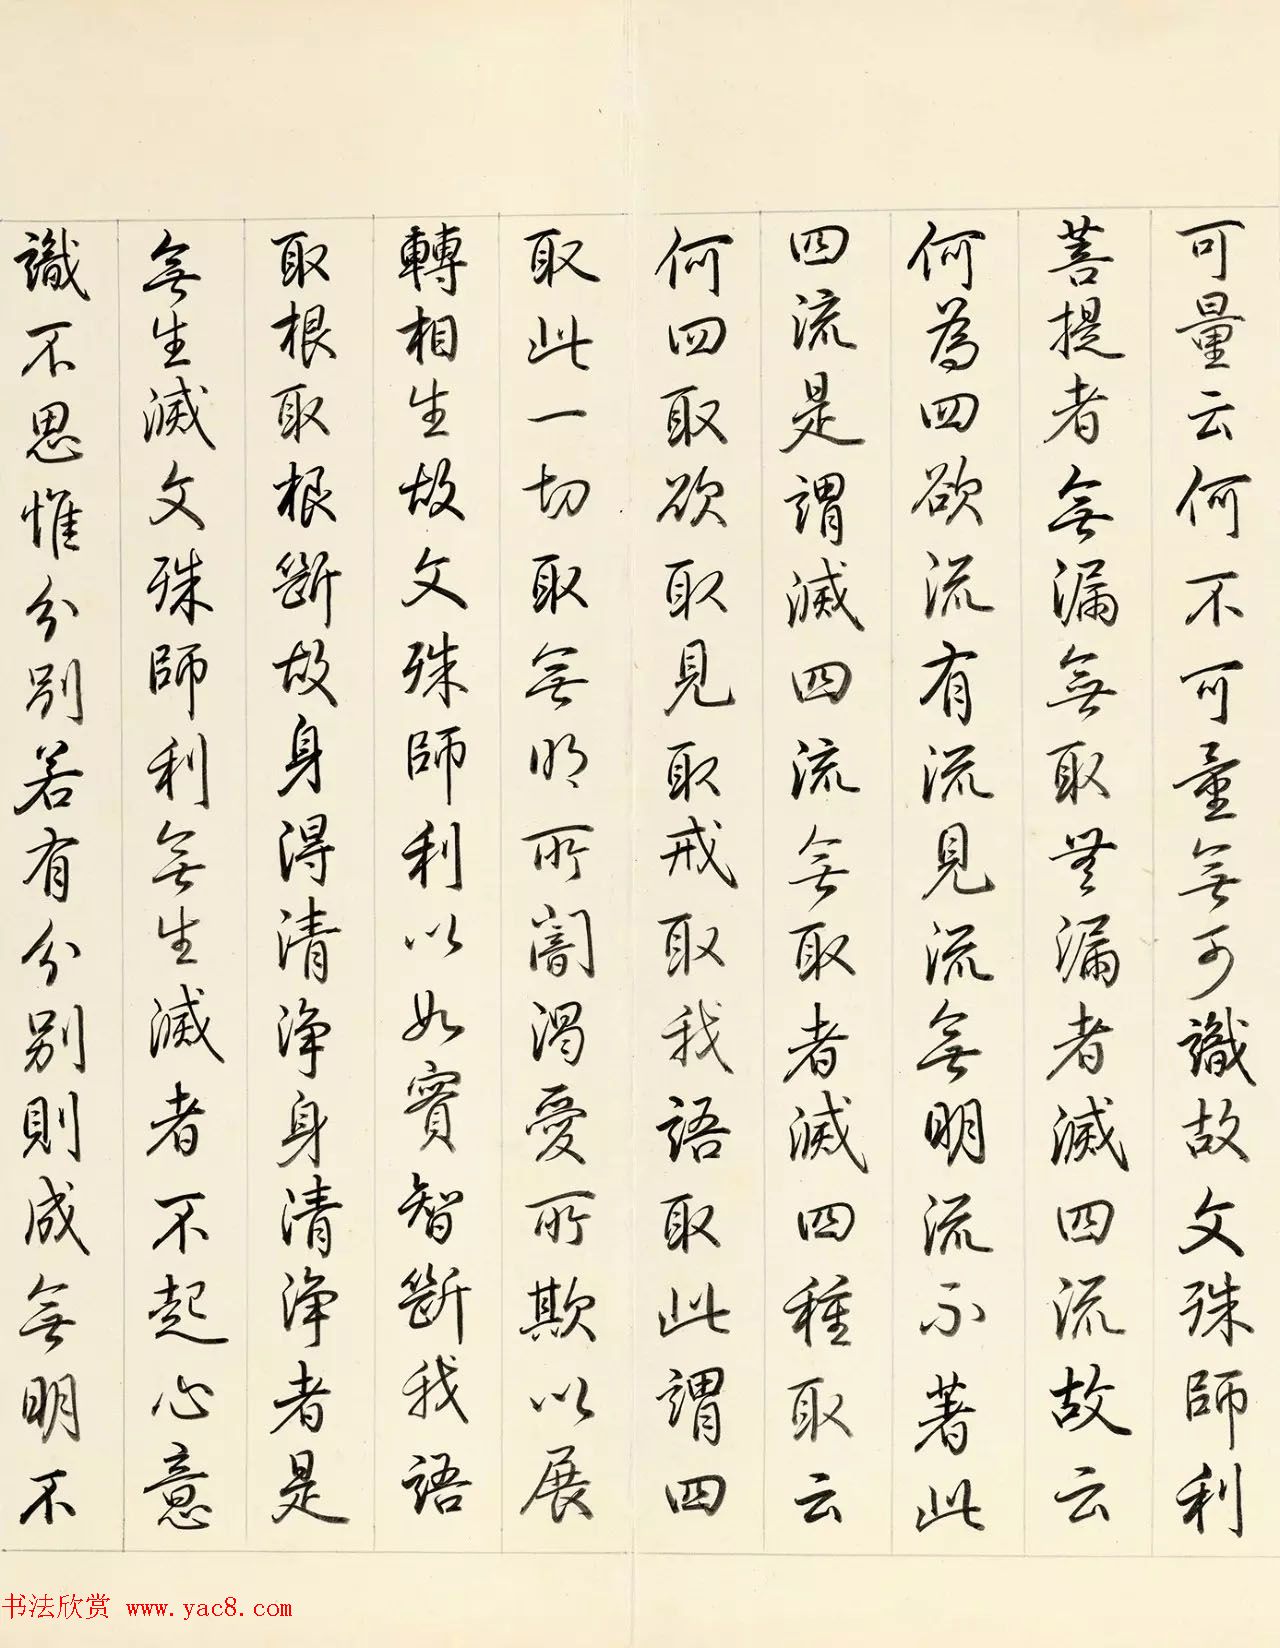 可量云何不可量無可識故文殊師利
菩提者無漏無取無漏者滅四流故云
何為四欲流有流見流無明流不著此
四流是謂滅四流無取者滅四種取云
何四取欲取見取戒取我語取此謂四
取此一切取無明所闇渴愛所欺以展
轉相生故文殊師利以如實智斷我語
取根取根斷故身得清淨身清淨者是
無生滅文殊師利無生滅者不起心意
識不思惟分別若有分別則成無明不
书法欣赏 www.yac8.com